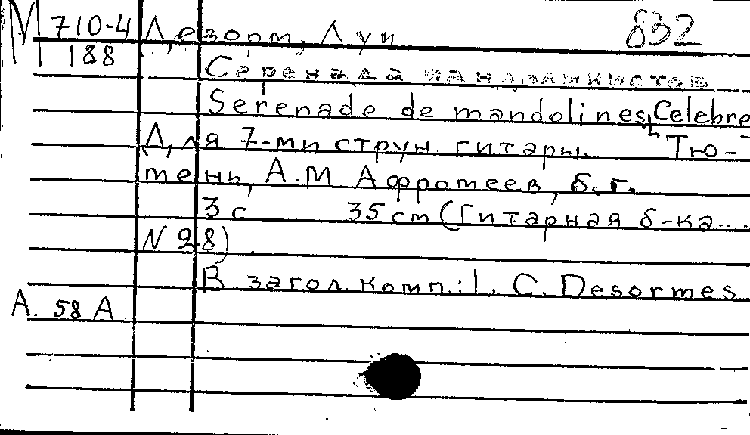 М 710-4 Дезорм, Луи 832
188
Серенада мандолинистов
Serenade de mandolines, Celebre
Для 7-ми струн. гитары. Тю-
мень, А.М Афромеев, б.г.
3 с 35 cm (Гитарная б-ка...
N 28)
В загол. комп.: L. C. Desormes
А. 58 А